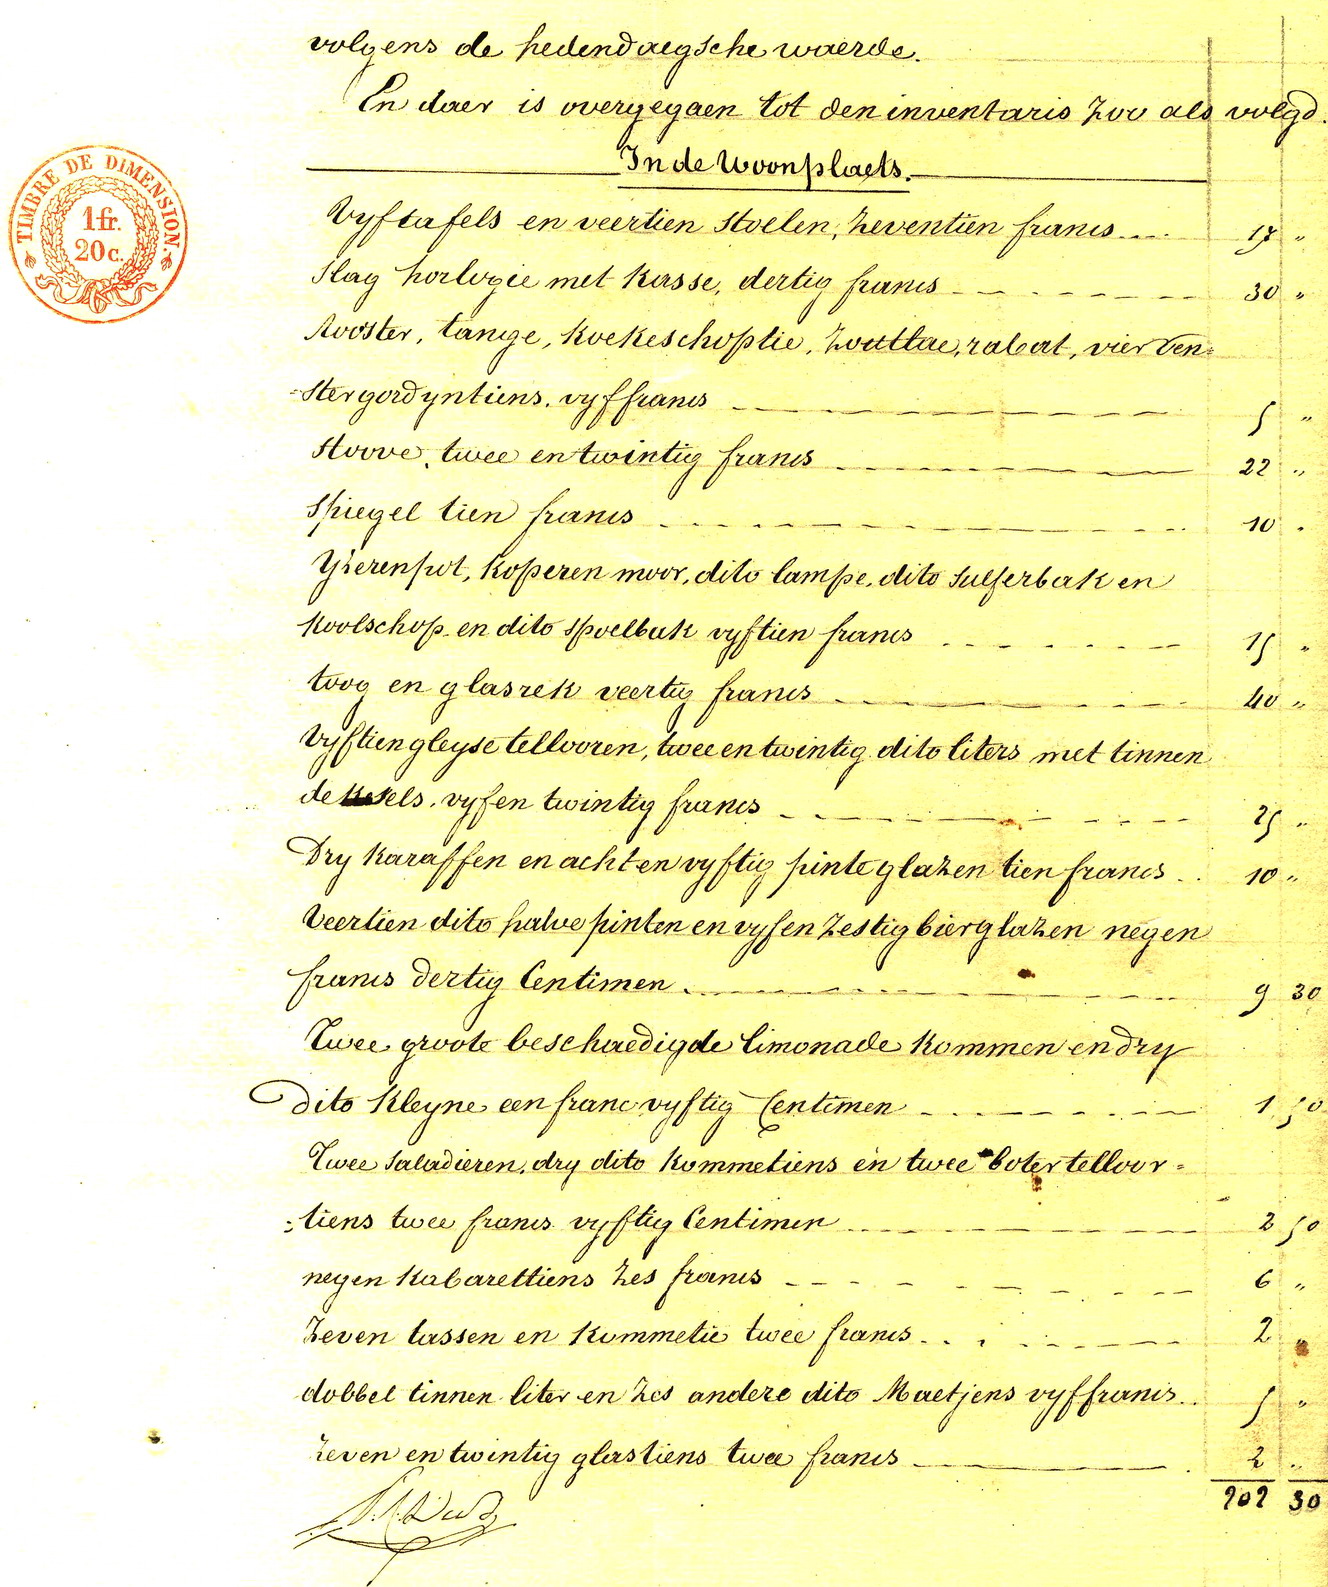 volgens de hedendaegsche waerde.
En daer is overgegaen tot den inventaris zoo als volgd.
In de Woonplaets.
TIMBRE DE DIMENSION.
1 fr.
20 c.
Vyf tafels en veertien stoelen, zeventien francs 17 "
Slag horlogie met kasse, dertig francs 30 "
Rooster, tange, koekeschoptie, zoutlae, rabat, vier ven=
=stergordyntiens. vyf francs 5 "
Stoove, twee en twintig francs 22 "
Spiegel tien francs 10 "
Yzerenpot, koperen moor, dito lampe, dito sulferbak en
koolschop en dito spoelbak vyftien francs 15 "
toog en glasrek veertig francs 40 "
Vyftien gleyse tellooren, twee en twintig dito liters met tinnen
deksels. vyf en twintig francs 25 "
Dry karaffen en acht en vyftig pinte glazen tien francs 10 "
Veertien dito halve pinten en vyf en zestig bierglazen negen
francs dertig Centimen 9 30
Twee groote beschaedigde limonade kommen en dry
dito kleyne een franc vyftig Centimen 1 50
Twee saladieren, dry dito kommetiens en twee boter telloor=
=tiens twee francs vyftig Centimen 2 50
negen kabarettiens zes francs 6 "
Zeven tassen en kommetie twee francs 2 "
dobbel tinnen liter en zes andere dito Maetjens vyf francs 5 "
zeven en twintig glastiens twee francs 2 "
202 30